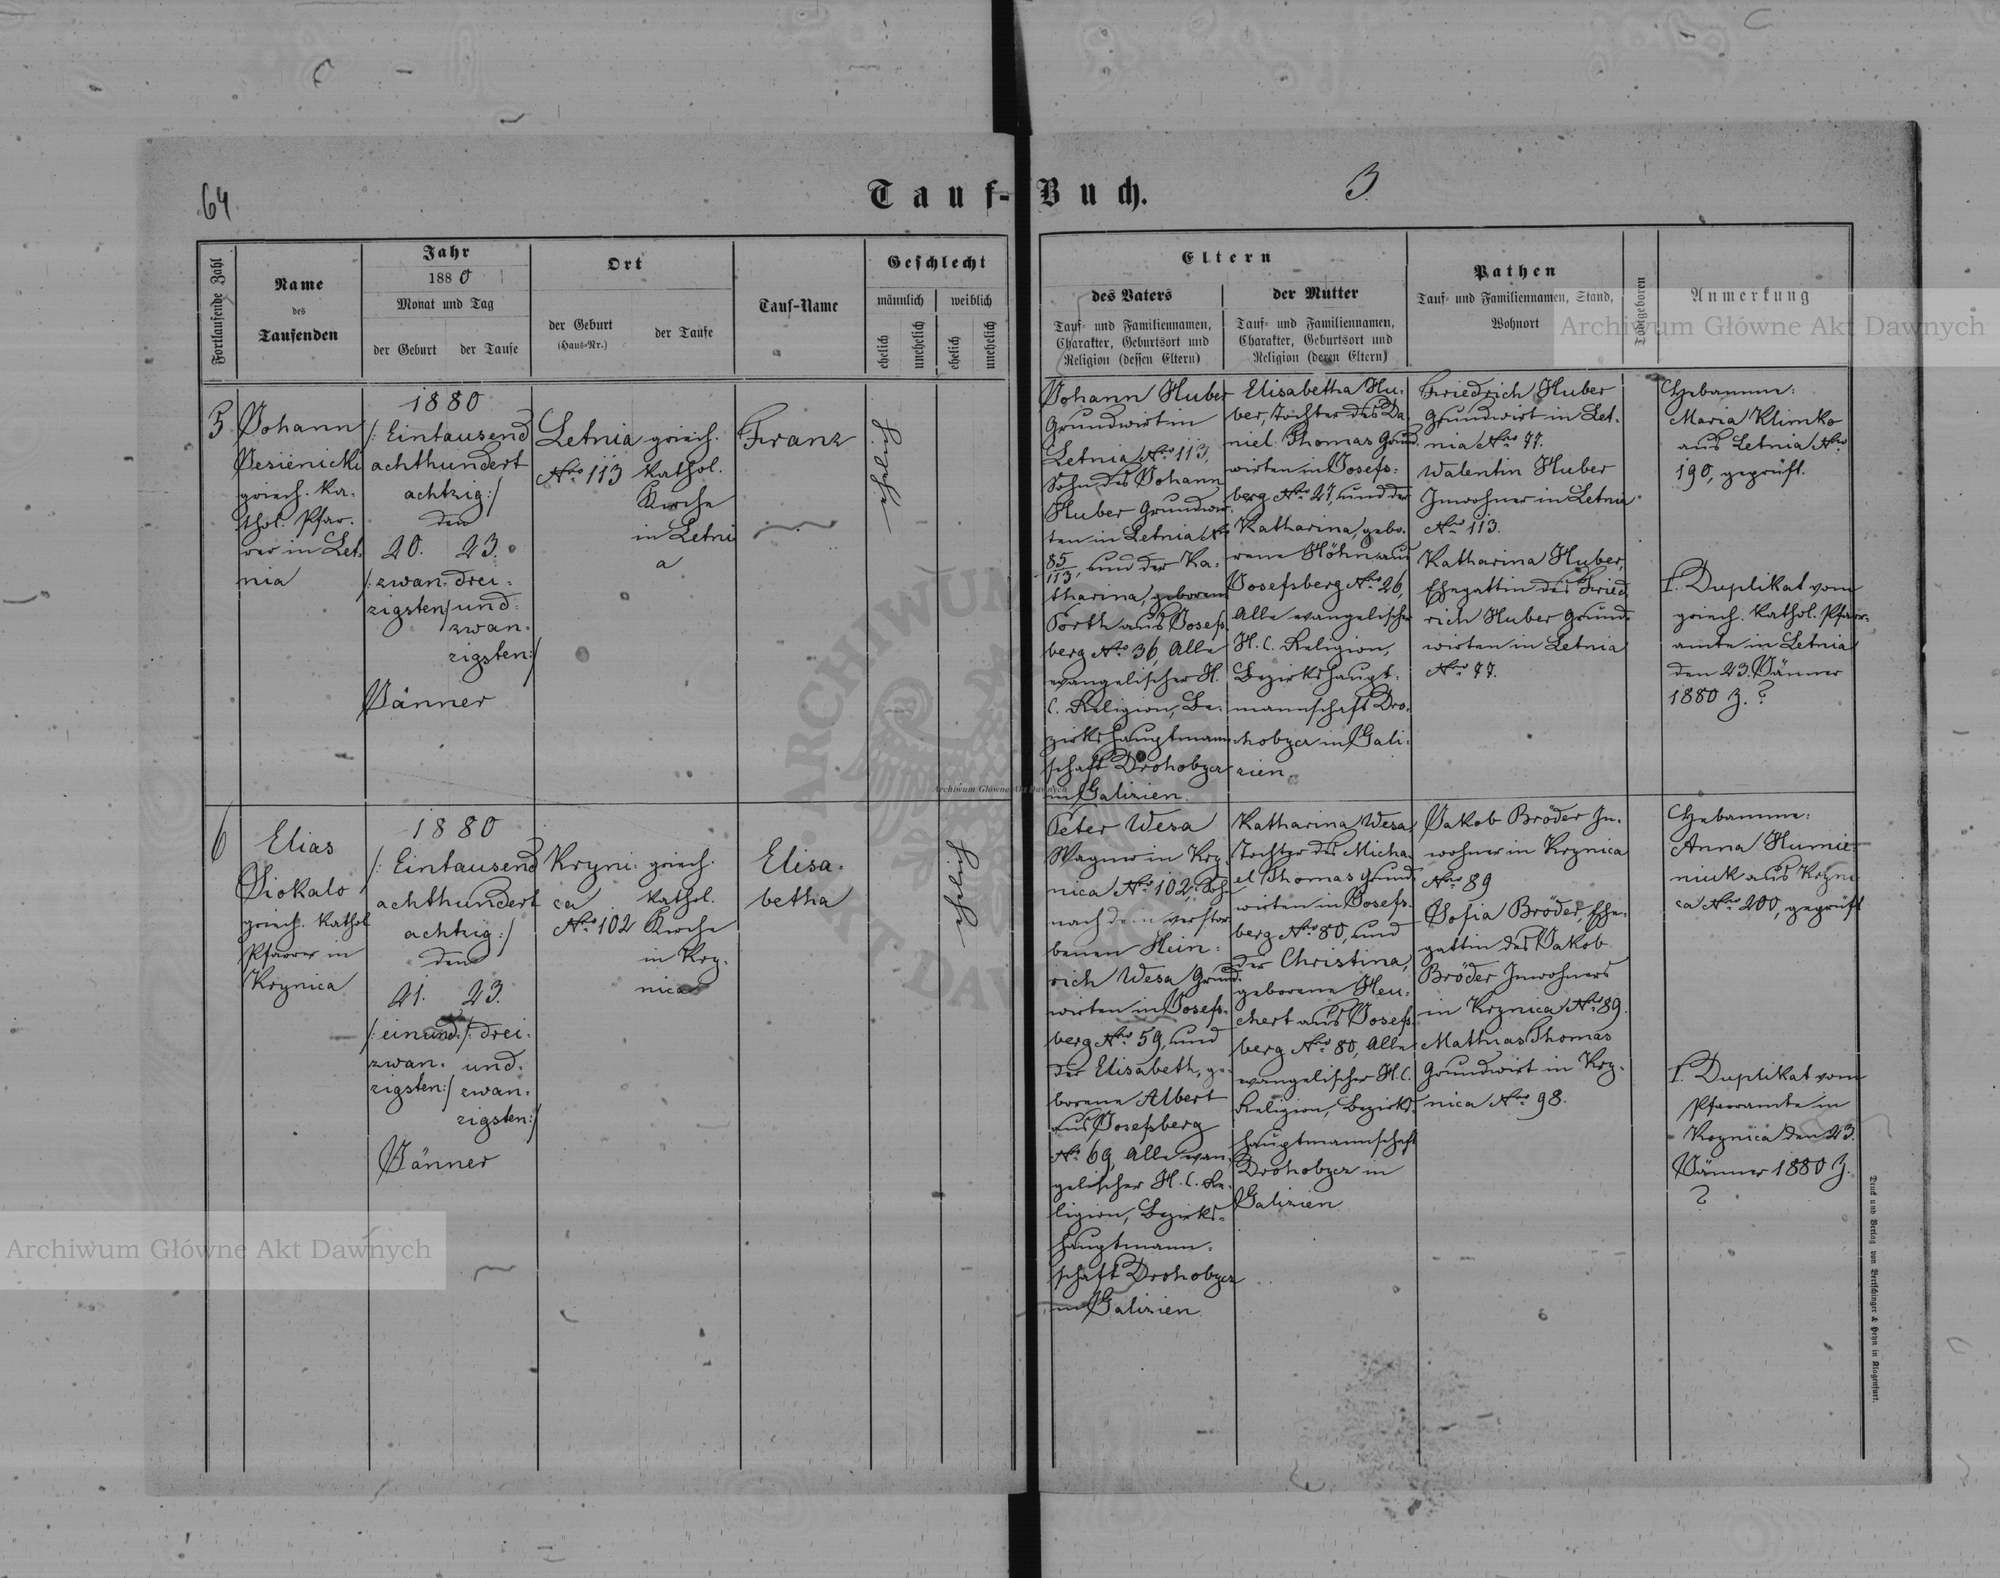 64
Tauf-Buch.
3.
Fortlaufende Zahl
Name
des
Taufenden
Jahr
1880
Monat und Tag
der Geburt
der Taufe
Ort
der Geburt
(Haus-Nr.)
der Taufe
Tauf-Name
Geschlecht
männlich
weiblich
ehelich
unehelich
ehelich
unehelich
Eltern
des Vaters
Tauf- und Familiennamen,
Charakter, Geburtsort und
Religion (dessen Eltern)
der Mutter
Tauf- und Familiennamen,
Charakter, Geburtsort und
Religion (deren Eltern)
Pathen
Tauf- und Familiennamen, Stand,
Wohnort
Todtgeboren
Anmerkung
5
Johann
griech. ka-
thol. Pfar-
rer in Let-
nia
1880
/: Eintausend
achthundert
achtzig :/
den
20. 23.
/: zwan- drei-
zigsten/ und-
zwan-
zigsten :/
Jänner
Letnia
Nro 113
griech.
kathol.
Kirche
in Letni
a
Franz
ehelich
Johann Huber
Grundwirt in
Letnia Nro 113,
Sohn des Johann
Huber Grundwir-
ten in Letnia Nro
85/113, und der Ka-
tharina, geborene
Porth aus Josefs-
berg Nro 36, Alle
evangelischer H.
C. Religion, Be-
zirkshauptmann-
schaft Drohobycz
in Galizien.
Elisabetha Hu-
ber, Tochter des Da-
niel Thomas Grund-
wirten in Josefs-
berg Nro 27, und der
Katharina, gebo-
rene Höhn aus
Josefsberg Nro 26,
Alle evangelischer
H. C. Religion,
Bezirkshaupt-
mannschaft Dro-
hobycz in Gali-
zien.
Friedrich Huber
Grundwirt in Let-
nia Nro 77.
Walentin Huber
Inwohner in Letnia
Nro 113.
Katharina Huber,
Ehegattin des Fried-
rich Huber Grund-
wirten in Letnia
Nro 77.
Hebamme:
Maria Klimko
aus Letnia Nro
190, geprüft.
I. Duplikat vom
griech. kathol. Pfarr-
amte in Letnia
den 23. Jänner
1880 Z. ?
6
Elias
Siokalo
griech. kathol
Pfarrer in
Krynica
1880
/: Eintausend
achthundert
achtzig :/
den
21. 23.
/: einund- /: drei-
zwan- und-
zigsten :/ zwan-
zigsten :/
Jänner
Kryni-
ca
Nro 102
griech.
kathol.
Kirche
in Kry-
nica
Elisa-
betha
ehelich
Peter Wesa
Wagner in Kry-
nica Nro 102, Sohn
nach dem verstor-
benen Hein-
rich Wesa Grund-
wirten in Josefs-
berg Nro 59, und
der Elisabeth, ge-
borene Albert
aus Josefsberg
Nro 69, Alle evan-
gelischer H. C. Re-
ligion, Bezirks-
hauptmann-
schaft Drohobycz
in Galizien.
Katharina Wesa,
Tochter des Micha-
el Thomas Grund-
wirten in Josefs-
berg Nro 80, und
der Christina,
geborene Heu-
chert aus Josefs-
berg Nro 80, Alle
evangelischer H. C.
Religion, Bezirks-
hauptmannschaft
Drohobycz in
Galizien
Jakob Bröder In-
wohner in Krynica
Nro 89
Sofia Bröder, Ehe-
gattin des Jakob
Bröder Inwohners
in Krynica Nro 89.
Mathias Thomas
Grundwirt in Kry-
nica Nro 98.
Hebamme:
Anna Humie-
niuk aus Kryni
ca Nro 200, geprüft
I. Duplikat vom
Pfarramte in
Krynica den 23.
Jänner 1880 Z.
?
Druck und Verlag von Bertschinger & Heyn in Klagenfurt.
Archiwum Główne Akt Dawnych
Archiwum Główne Akt Dawnych
Archiwum Główne Akt Dawnych